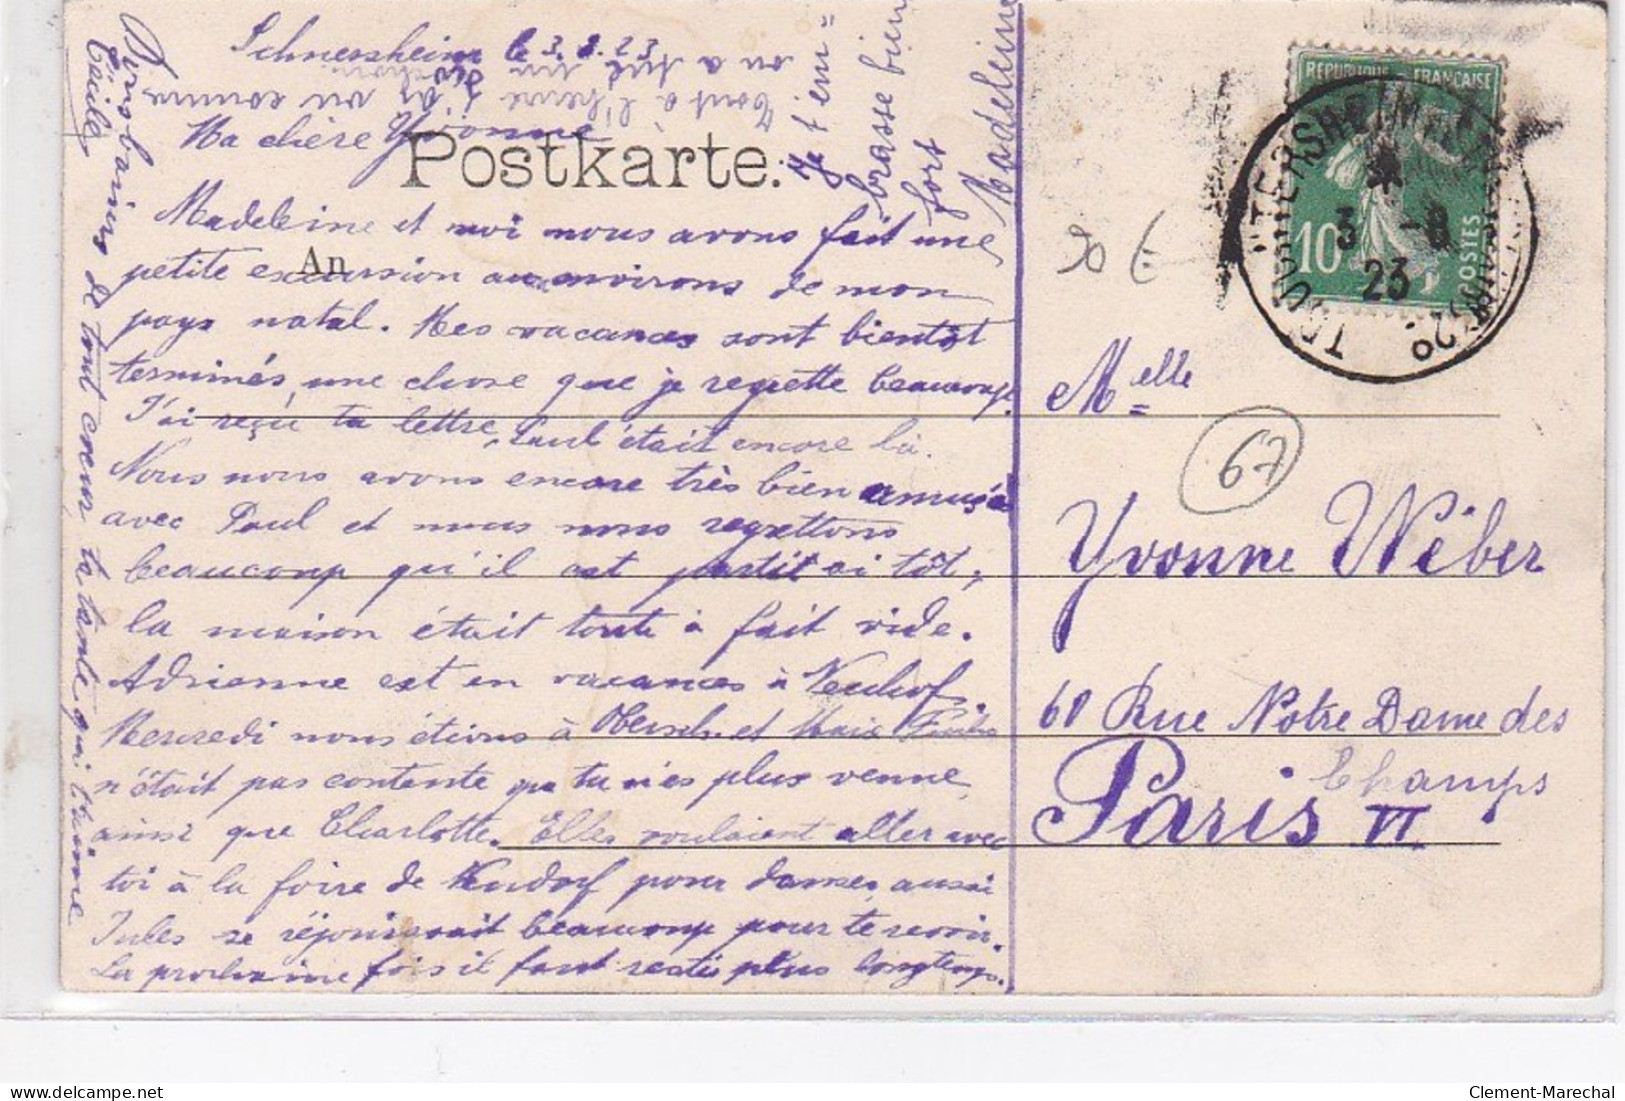 Schnersheim le 3.8.23
Ma chère Yvonne
Postkarte.
An
Madeleine et moi nous avons fait une
petite excursion au environs de mon
pays natal. Mes vacances sont bientôt
terminés, une chose que je regrette beaucoup.
J'ai reçu ta lettre, Paul était encore là.
Nous nous avons encore très bien amusés
avec Paul et nous nous regrettons
beaucoup qu'il est partit si tôt,
la maison était toute à fait vide.
Adrienne est en vacances à Neudorf.
Mercredi nous étions à Obersch. et Marie
n'était pas contente que tu n'es plus venne
ainsi que Charlotte. Elles voulaient aller avec
toi à la foire de Neudorf pour danser, aussi
Jules se réjouissait beaucoup pour te revoir.
La prochaine fois il faut restée plus longtemps.
Gros baisers de tout coeur ta tante qui t'aime
Cécile
Tout à l'heure
on a tué un
cochon
Je t'em=
brasse bien
fort
Madeleine
REPUBLIQUE FRANÇAISE
10
POSTES
TRUCHTERSHEIM
3 -8
23
20 €
67
Melle
Yvonne Wéber
60 Rue Notre Dame des
Champs
Paris VI
Clement-Marechal